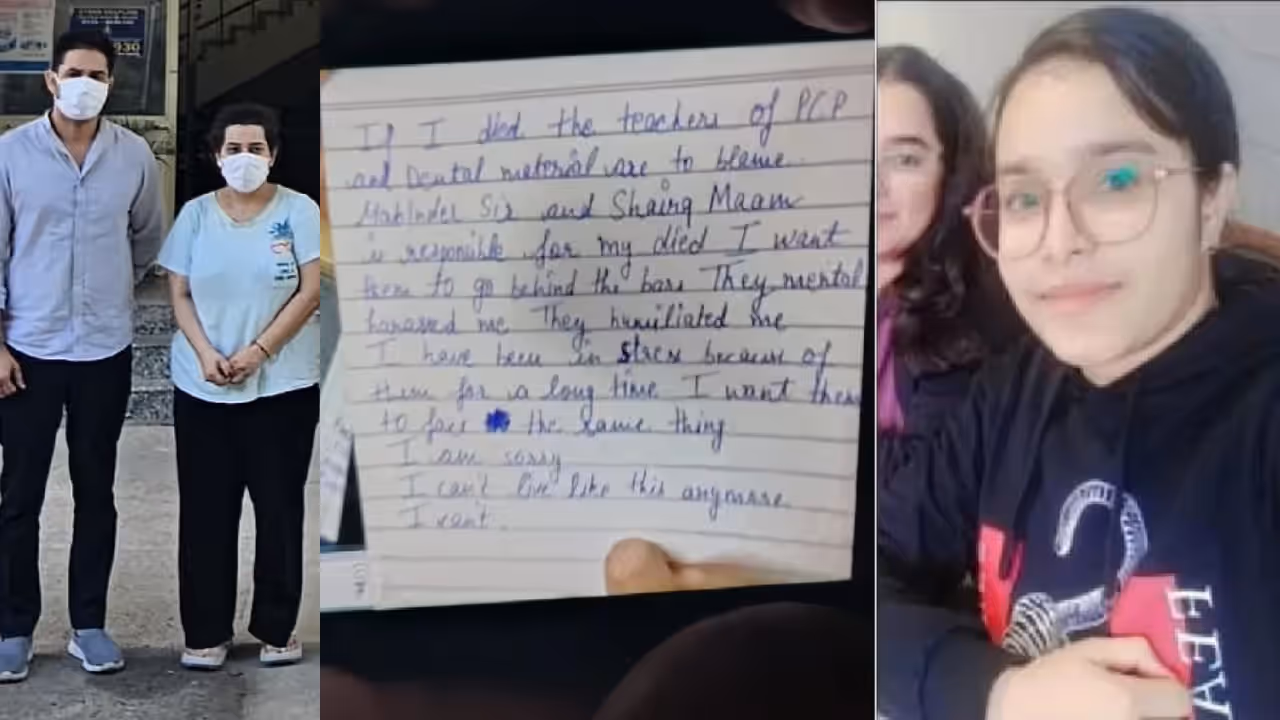 930
If I died the teachers of PCP
and Dental material are to blame.
Mahinder Sir and Shairg Maam
is responsible for my died I want
them to go behind the bars They mental
harassed me They humiliated me
I have been in stress because of
them for a long time I want them
to face the same thing
I am sorry
I can't live like this anymore
I cant.